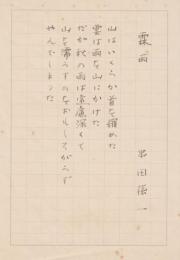 霖雨
串田孫一
山はいくらか首を縮めた
雲は雨を山にかけた
だが秋の雨は遠慮深くて
山を濡らすのを
やんでしまった